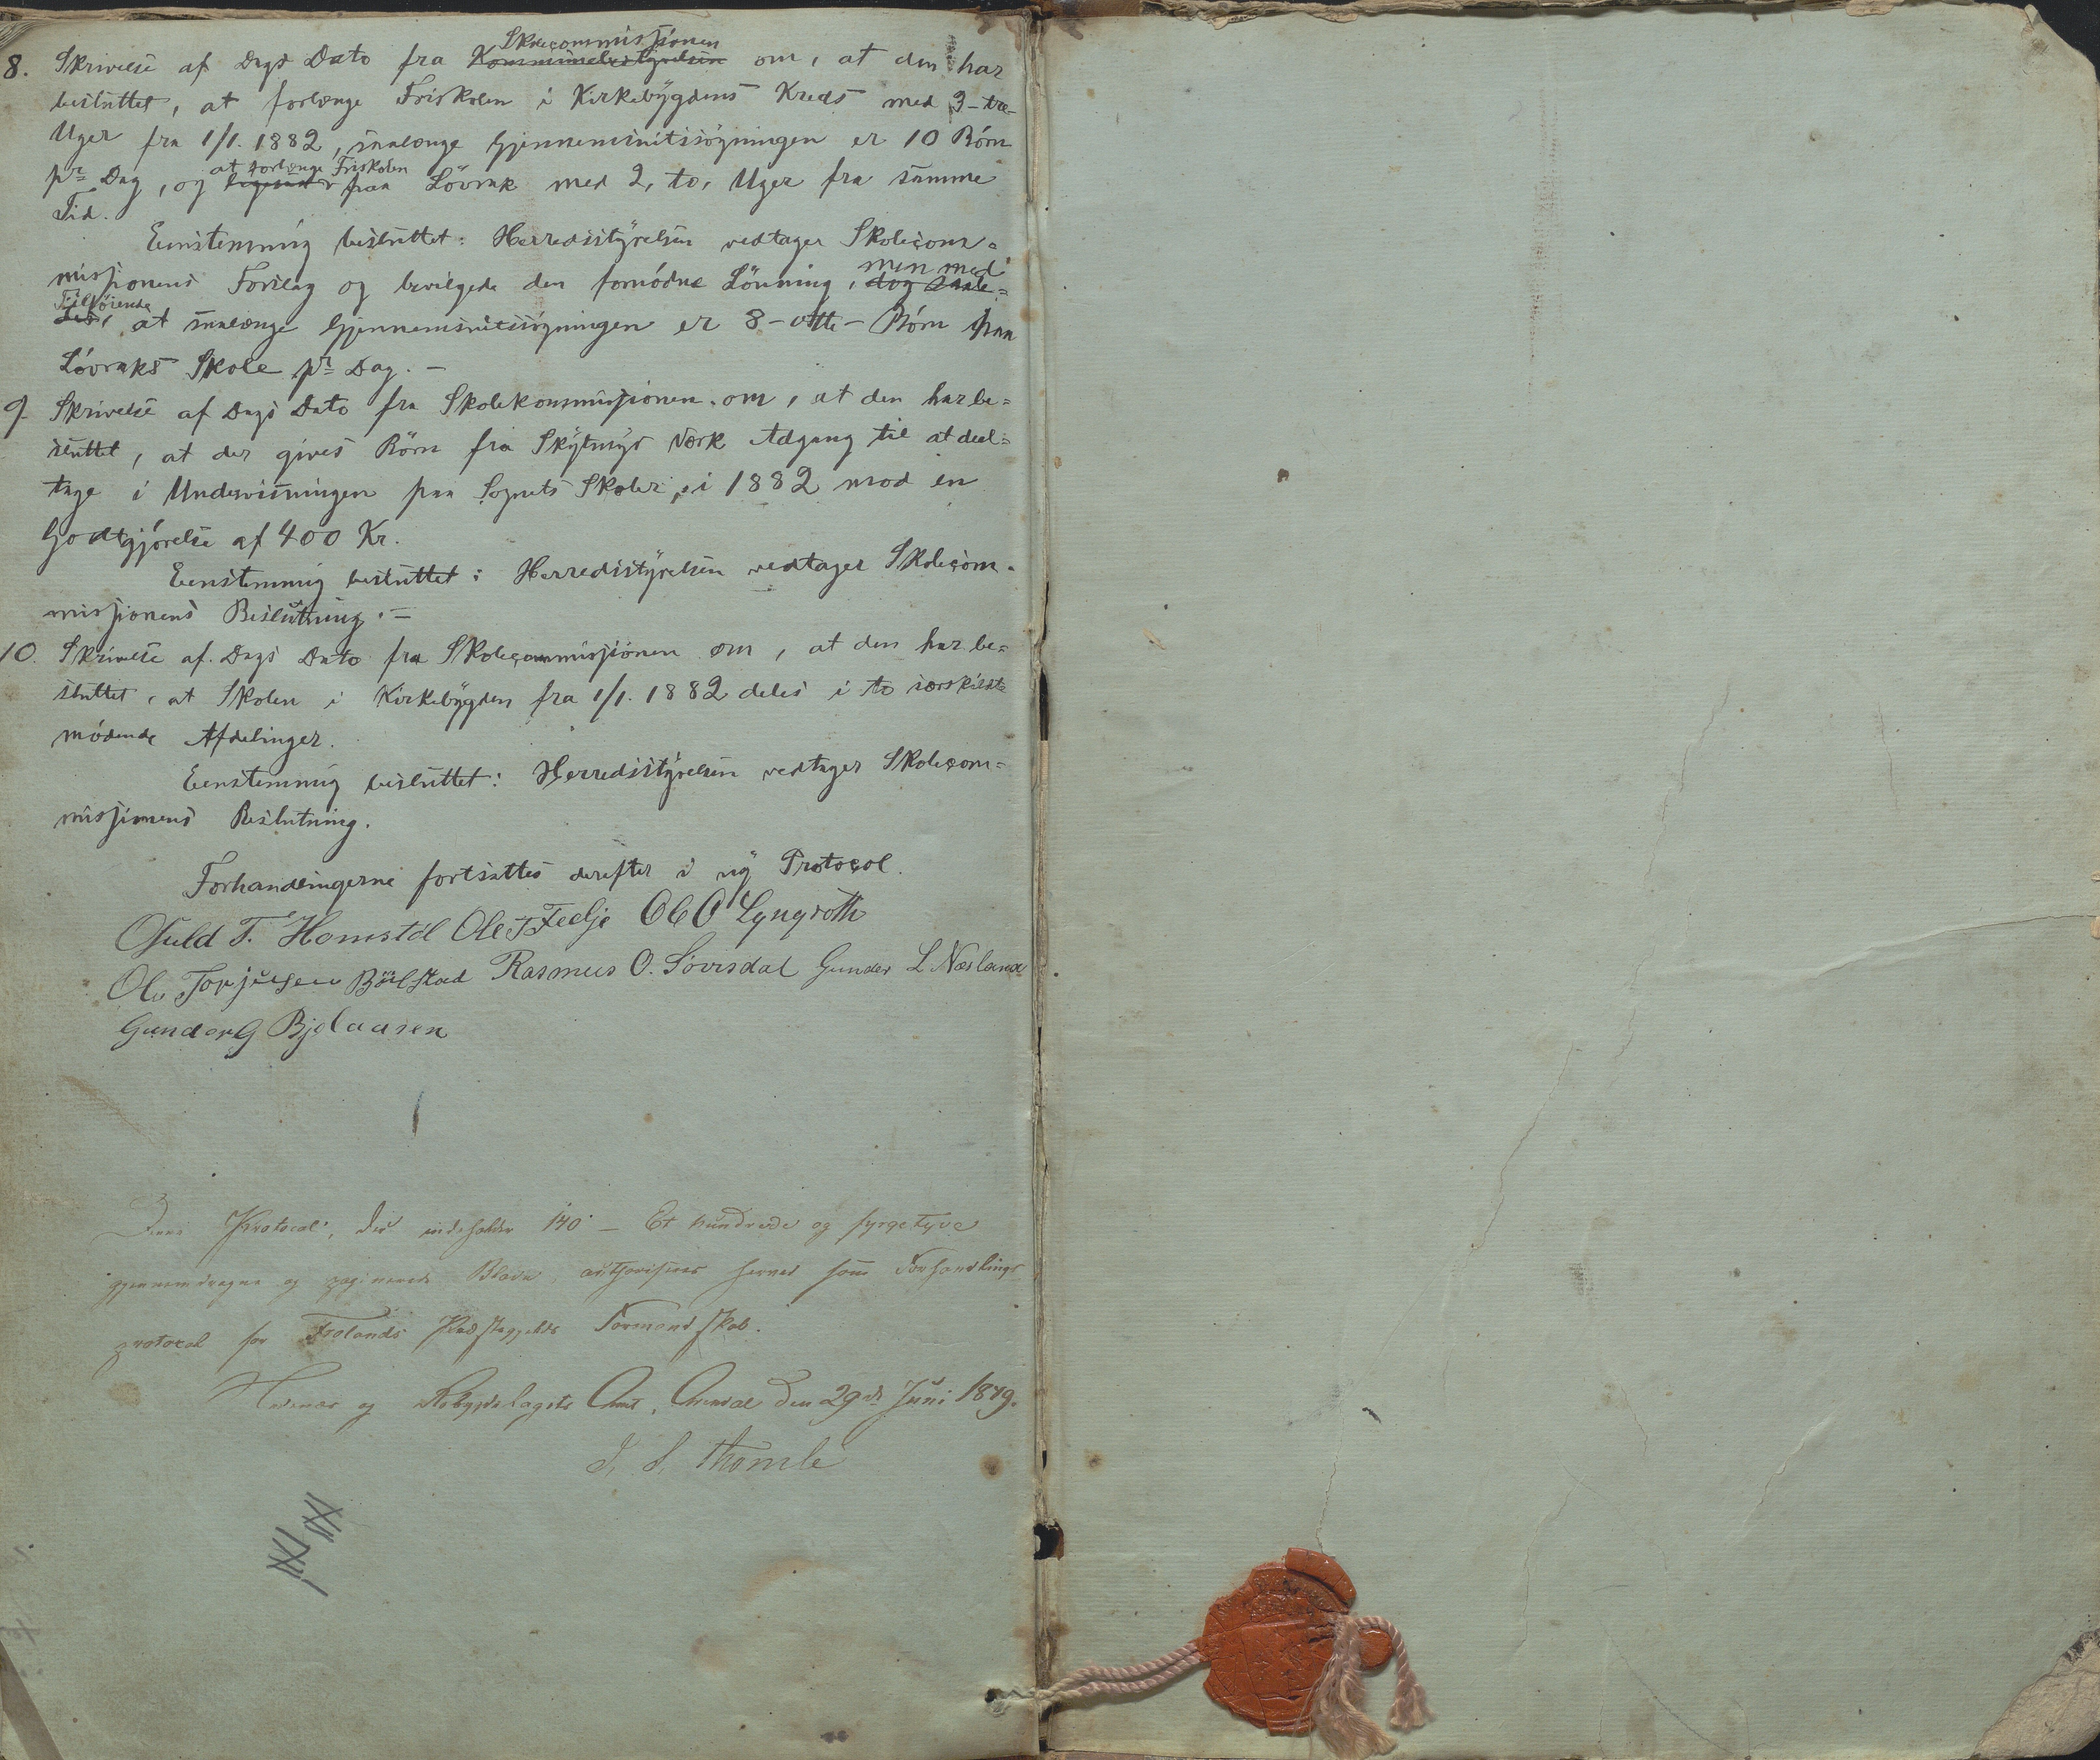 Skolecommissionen
8. Skrivelse af Dags Dato fra Kommunebestyrelsen om, at den har
besluttet, at forlænge Friskolen i Kirkebygdens Kreds med 3-tre-
Uger fra 1/1. 1882, saalænge Gjennemsnitssøgningen er 10 Børn
at forlænge Friskolen
pr Dag, og paa Løvrak med 2, to, Uger fra samme
Tid.
Eenstemmig besluttet: Herredsstyrelsen vedtager Skolecom=
men med
missionens Forslag og bevilgede den fornødne Lønning, dog saale=
Tilføiende
des, at saalænge Gjennemsnitssøgningen er 8-otte- Børn paa
Løvraks Skole pr Dag. -
9. Skrivelse af Dags Dato fra Skolekommissionen om, at den har be=
sluttet, at der gives Børn fra Værk Adgang til at deel=
tage i Undervisningen paa Sognets Skoler i 1882 mod en
Godtgjørelse af 400 Kr.
Eenstemmig besluttet: Herredsstyrelsen vedtager Skolecom=
missionens Beslutning. =
10. Skrivelse af Dags Dato fra Skolecommissionen om, at den har be=
sluttet, at Skolen i Kirkebygden fra 1/1. 1882 deles i to særskildte
mødende Afdelinger.
Eenstemmig besluttet: Herredsstyrelsen vedtager Skolecom=
missionens Beslutning.
Forhandlingerne fortsattes derefter i ny Protocol.
T. Homstøl Ole T Fedje Ole O Lyngroth
Ole Torjusen Bøilstad Rasmus O. Løvrsdal Gunder L Næsland
Gunder G Bjelaasen
Denne Protocol, der indeholder 140 - Et hundrede og fyrgetyve
gjennemdragne og paginerede Blade authoriseres herved som Forhandlings
protocol for Frolands Præstegjelds Formandskab.
Nedenæs og Robygdelagets Amt, Arendal den 29de Juni 1879.
J. S. Thomle